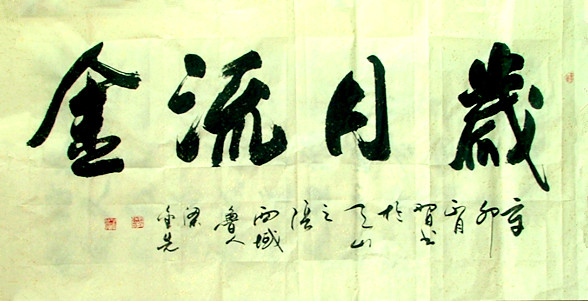 歲月流金
辛卯月習書於天山之西域魯人梁金先